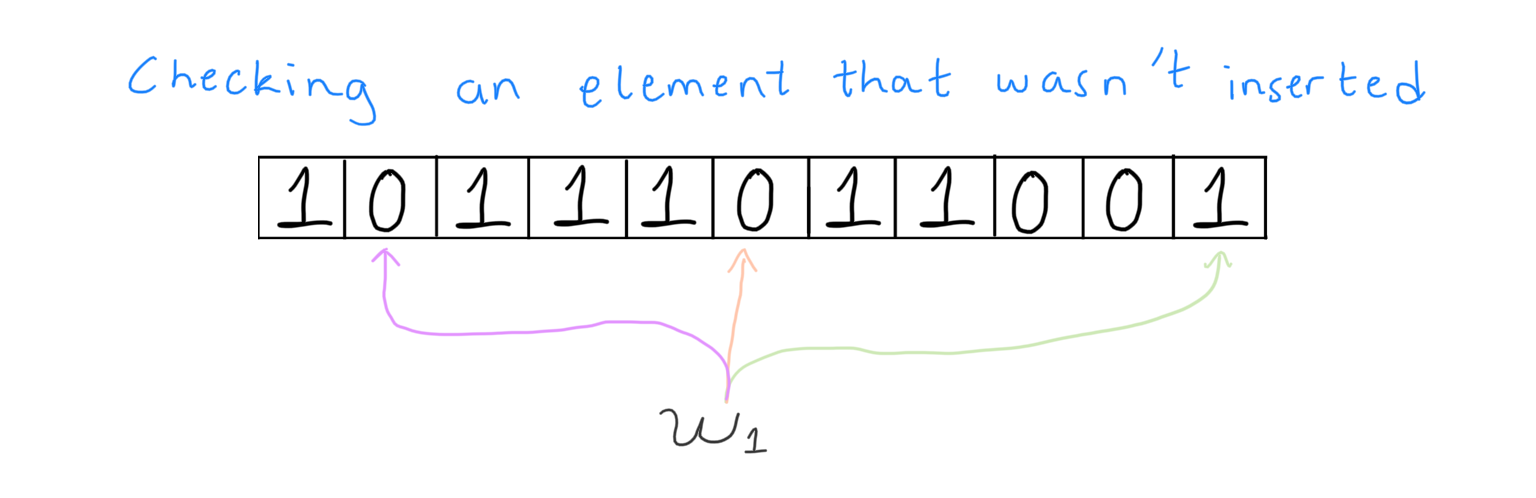 Checking an element that wasn't inserted
1 0 1 1 1 0 1 1 0 0 1
w₁